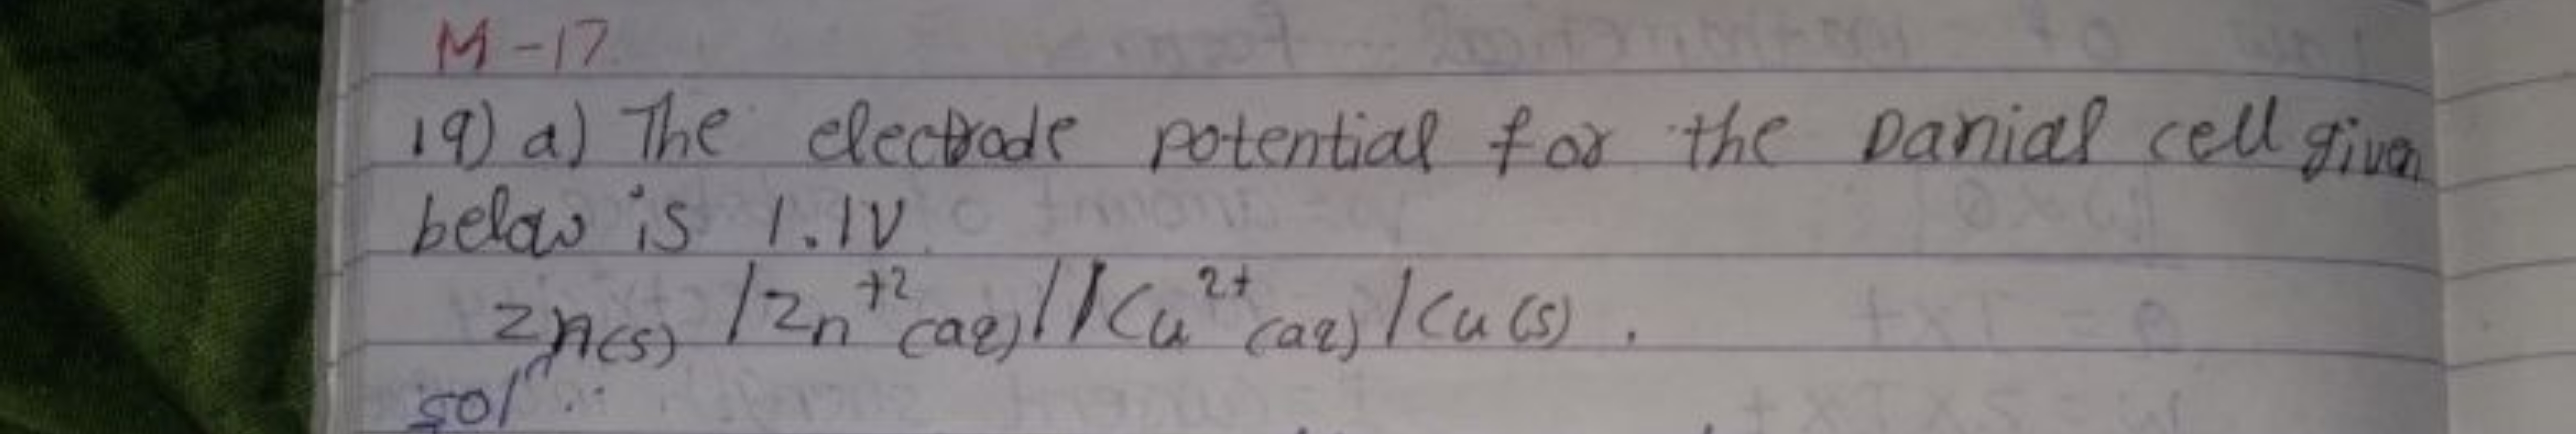 M-17
19) a) The electrode potential for the Danial cell given
below is 1.1V
Zn(s) /Zn⁺²(aq)//Cu²⁺(aq)/Cu(s).
solⁿ: